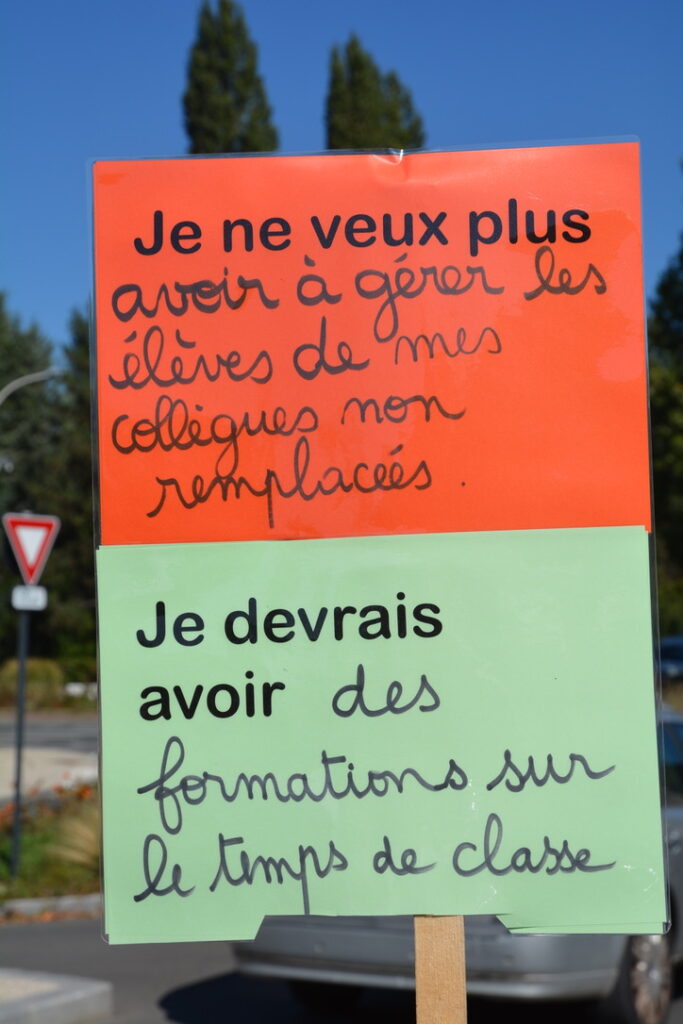 Je ne veux plus
avoir à gérer les
élèves de mes
collègues non
remplacées.
Je devrais
avoir des
formations sur
le temps de classe